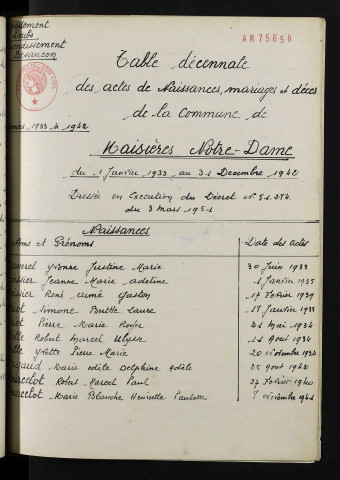 AM 75650
Doubs
Besançon
Table décennale
des actes de Naissances, mariages et décès
de la Commune de
Années 1933 à 1942
Maisières Notre-Dame
du 1 Janvier 1933 au 31 Decembre 1942
Dressée en execution du Décret n° 51.284
du 3 mars 1951
Naissances
Noms et Prénoms Date des actes
Yvonne Justine Marie 30 Juin 1933
Jeanne Marie adeline 1 Janvier 1935
René aimé Gaston 17 Février 1939
Simone Berthe Laure 17 Janvier 1933
Pierre Marie Roger 31 Mai 1934
Robert Marcel Ulysse 11 Août 1934
Yvette Pierre Marie 20 Novembre 1934
Marie Odile Delphine Adèle 25 Août 1942
Robert Marcel Paul 22 Février 1940
Marie Blanche Henriette Paulette Novembre 1941